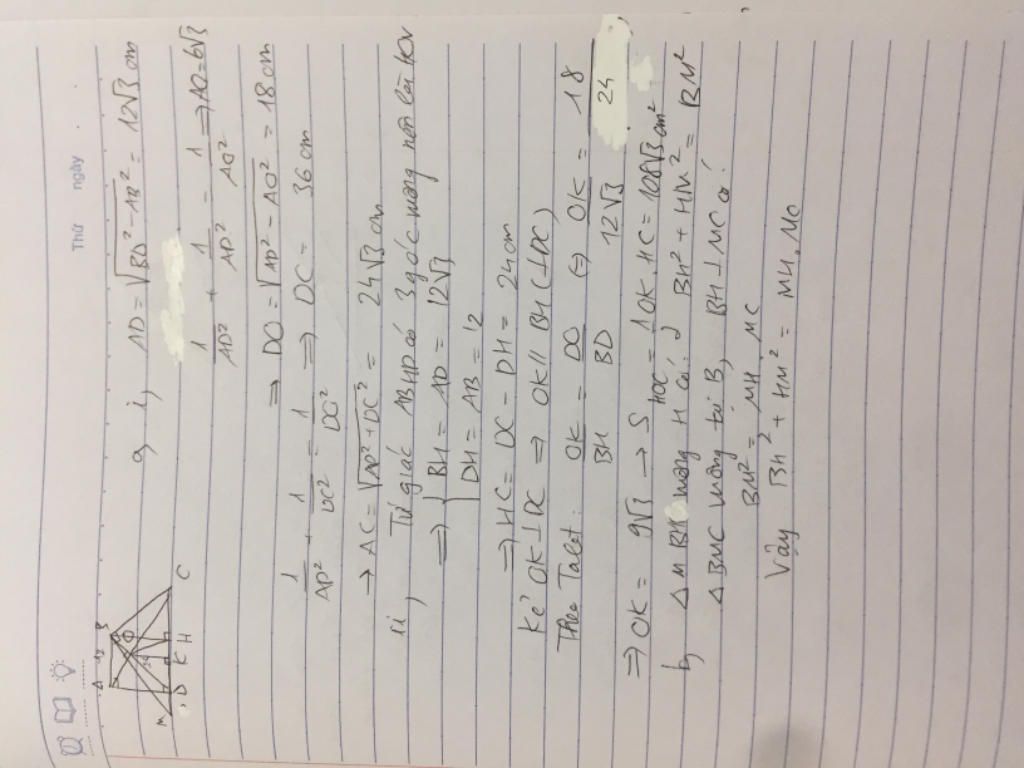 Thứ ngày
a, i, AD = √(BD² - AB²) = 12√3 cm
1/AD² + 1/AD² = 1/AO² ⇒ AO = 6√3
⇒ DO = √(AD² - AO²) = 18 cm
1/AD² + 1/DC² = 1/DC² ⇒ DC = 36 cm
→ AC = √(AD² + DC²) = 24√3 cm
ii, Tứ giác ABHD có 3 góc vuông nên là hcn
⇒ { BH = AD = 12√3
DH = AB = 12
⇒ HC = DC - DH = 24cm
Kẻ OK ⊥ DC ⇒ OK // BH (⊥ DC)
Theo Talet: OK/BH = DO/BD ⇔ OK/12√3 = 18/24
⇒ OK = 9√3 → S HOC = 1 OK.HC = 108√3 cm²
2
b, Δ MBH vuông H có: BH² + HM² = BM²
Δ BMC vuông tại B, BH ⊥ MC có:
BM² = MH.MC
Vậy BH² + HM² = MH.MC
A 12 B
O
M D K H C